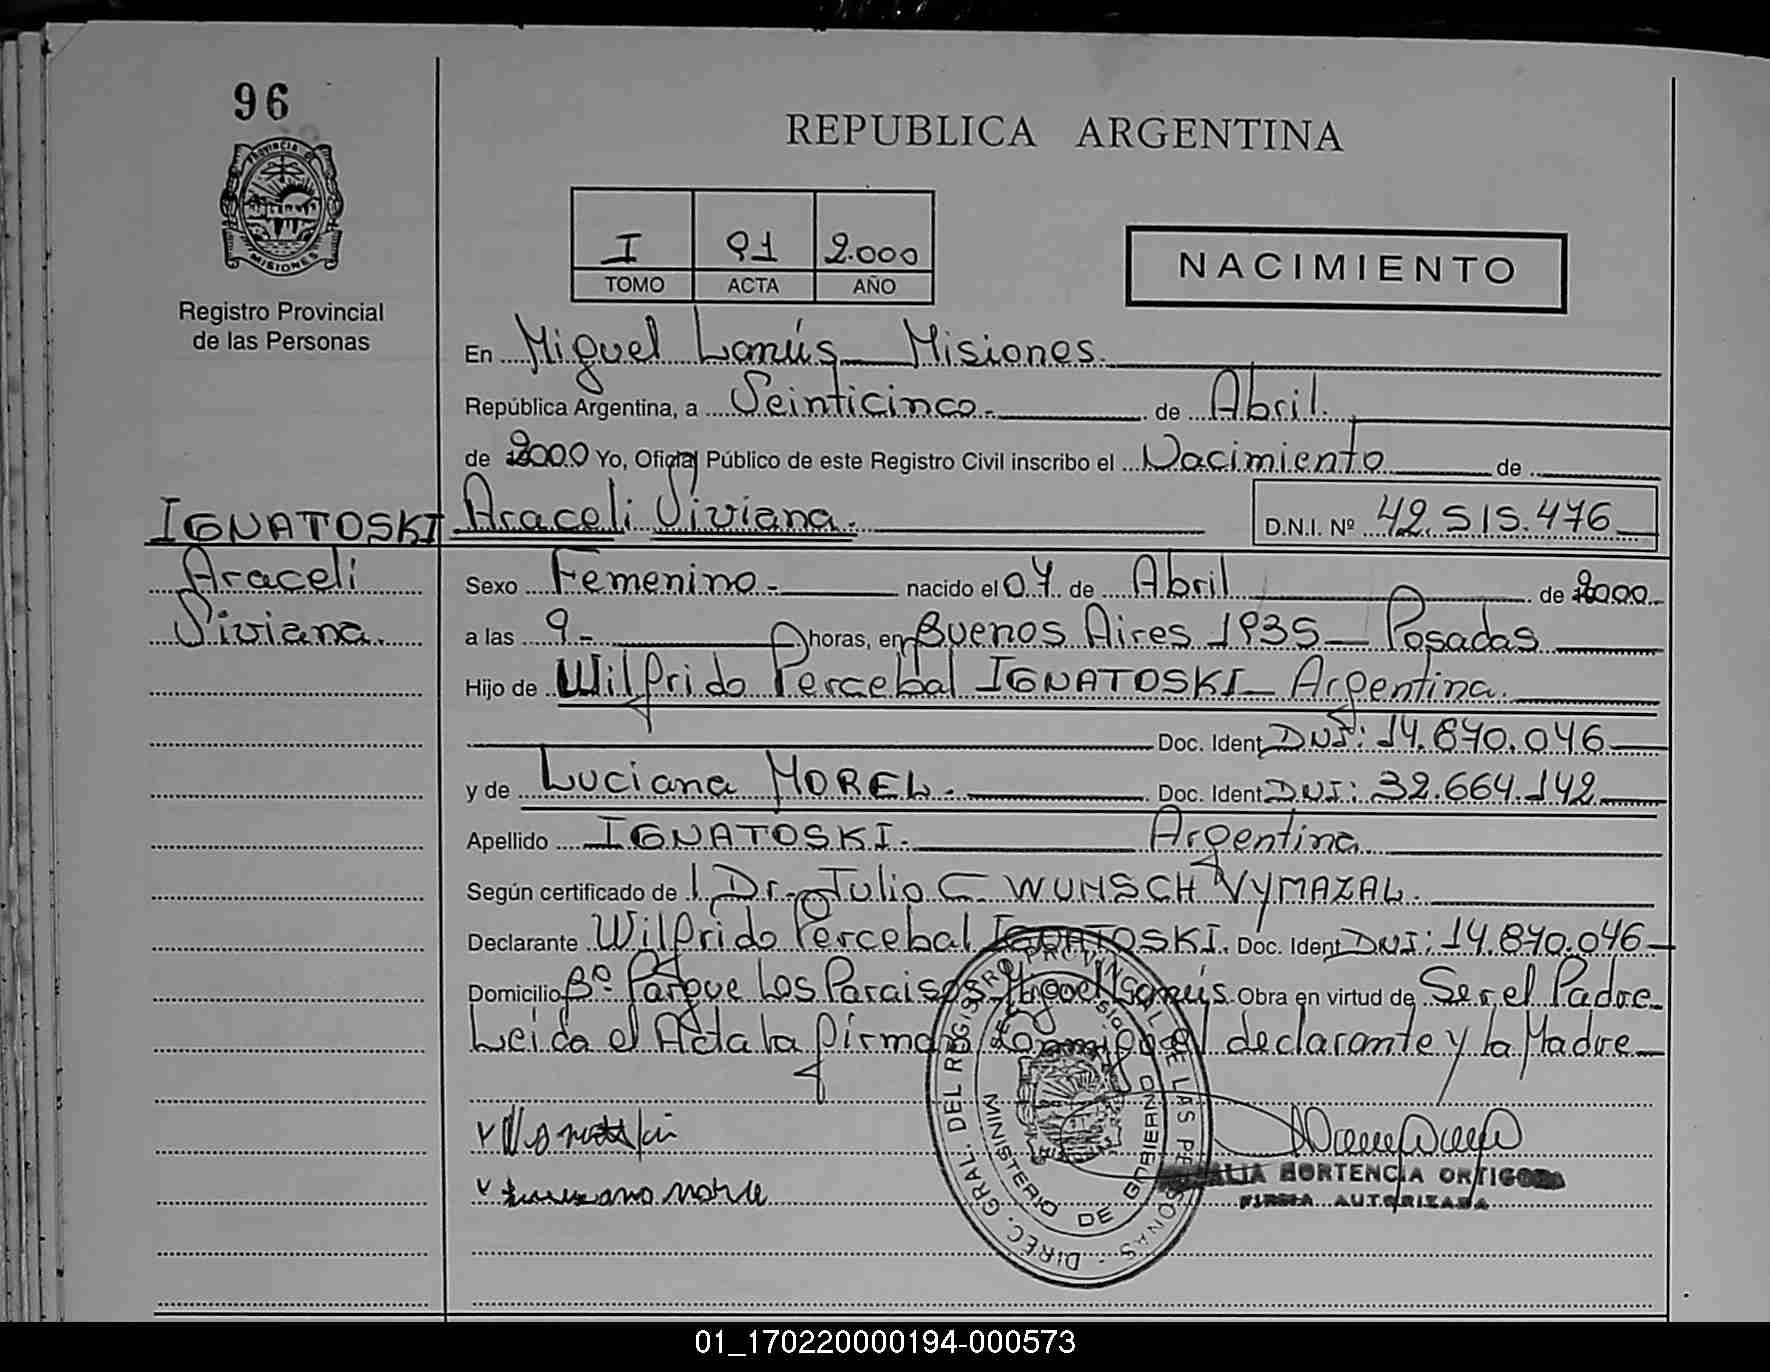 96
REPUBLICA ARGENTINA
PROVINCIA DE MISIONES
Registro Provincial
de las Personas
I 91 2.000
TOMO ACTA AÑO
NACIMIENTO
En Miguel Lanús Misiones.
República Argentina, a Veinticinco.- de Abril.
de 2000 Yo, Oficial Público de este Registro Civil inscribo el Nacimiento de
IGNATOSKI Araceli Viviana. D.N.I. Nº 42.515.476
Araceli
Viviana.
Sexo Femenino.- nacido el 07 de Abril de 2000
a las 9.- horas, en Buenos Aires 1935 Posadas
Hijo de Wilfrido Percebal IGNATOSKI Argentina.
Doc. Ident DNI: 14.840.046
y de Luciana MOREL. Doc. Ident DNI: 32.664.142
Apellido IGNATOSKI. Argentina
Según certificado de l Dr. Julio C WUNSCH VYMAZAL.
Declarante Wilfrido Percebal IGNATOSKI. Doc. Ident DNI: 14.840.046
Domicilio Bº Parque Los Paraisos Miguel Lanús. Obra en virtud de Ser el Padre
Leida el Acta la firman conmigo el declarante y la Madre
DIREC. GRAL. DEL REGISTRO PROVINCIAL DE LAS PERSONAS
MINISTERIO DE GOBIERNO
HORTENCIA ORTIGOZA
FIRMA AUTORIZADA
01_170220000194-000573